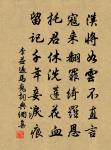 漢將如雲不直言
寇來翻罪綺羅恩
托君休洗蓮花血
留記千年妾淚痕
李益過馬嵬詞典網